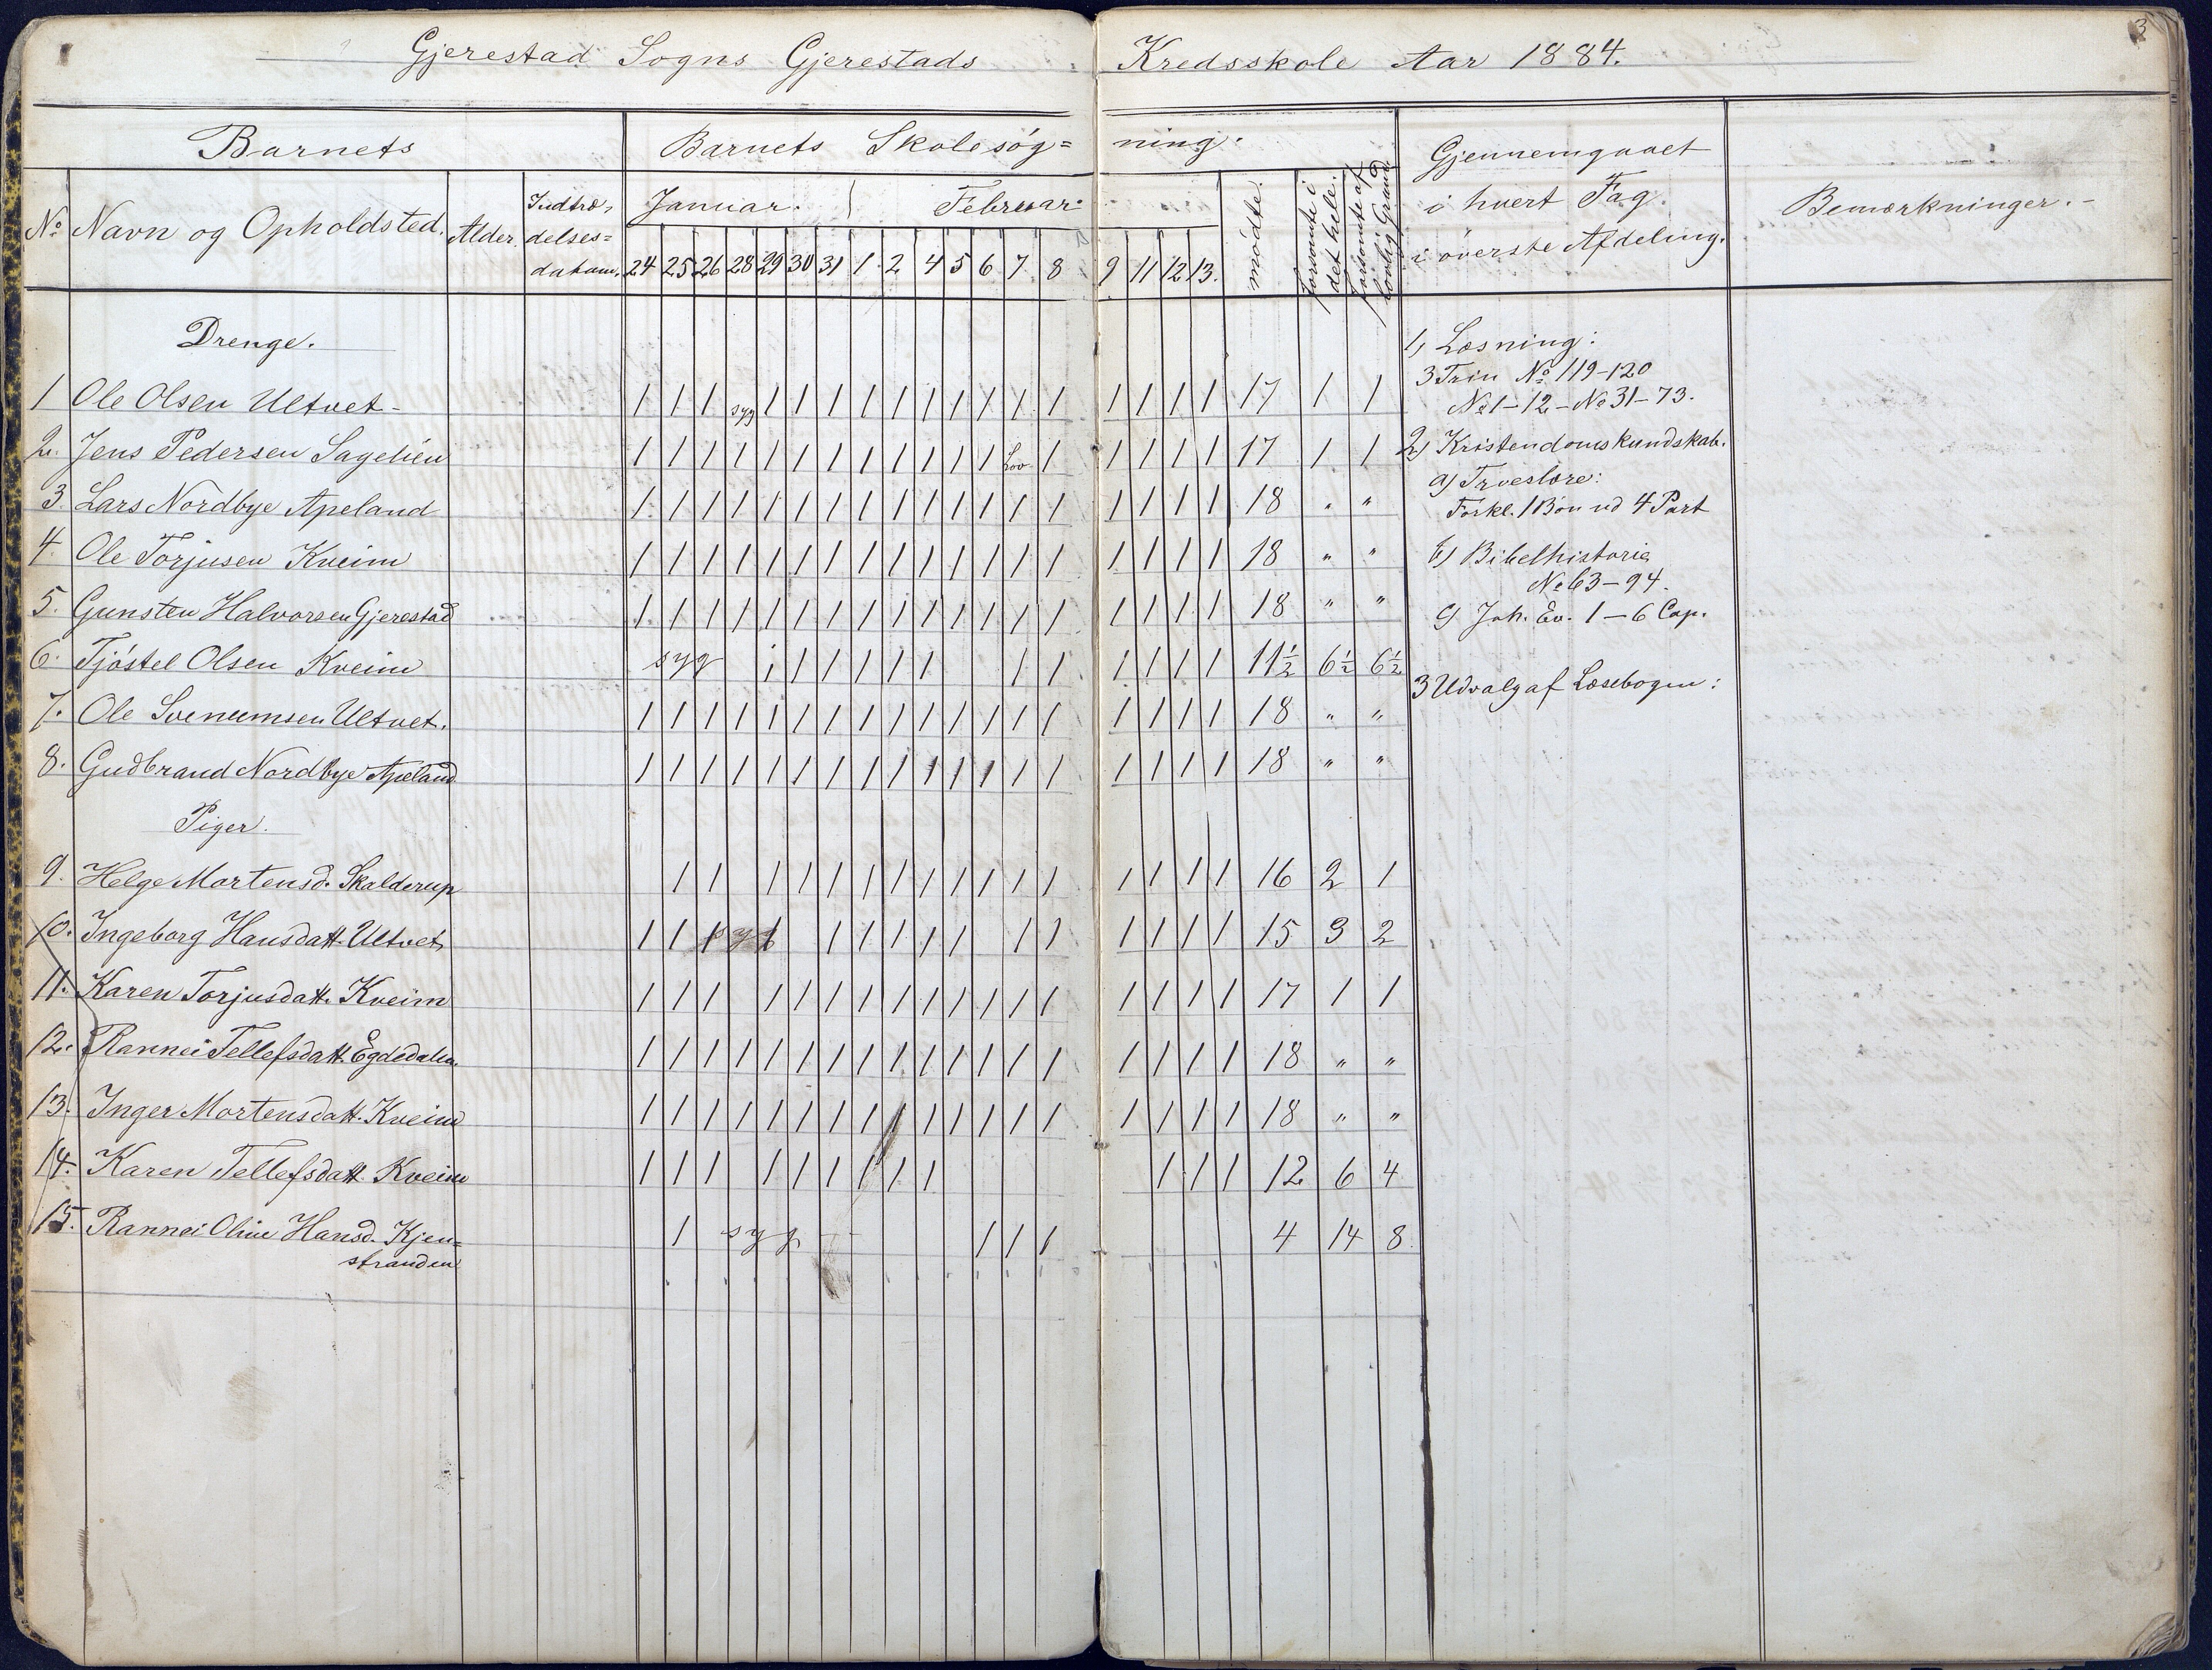 3
Gjerestad Sogns Gjerestads Kredsskole Aar 1884.
Barnets Barnets Skolesøg= ning. Gjennemgaaet i hvert Fag. i øverste Afdeling. Bemærkninger.-
No Navn og Opholdsted. Alder. Indtræ, delses= datum. Januar. Februar. mødte. forsømte i det hele. forsømte af lovlig Grund
24 25 26 28 29 30 31 1 2 4 5 6 7 8 9 11 12 13.
Drenge.
1 Ole Olsen Ultvet- 1 1 1 syg 1 1 1 1 1 1 1 1 1 1 1 1 1 1 17 1 1
2. Jens Pedersen Sagelien 1 1 1 1 1 1 1 1 1 1 1 1 Lov 1 1 1 1 1 17 1 1
3. Lars Nordbye Apeland 1 1 1 1 1 1 1 1 1 1 1 1 1 1 1 1 1 1 18 " "
4. Ole Torjusen Kveim 1 1 1 1 1 1 1 1 1 1 1 1 1 1 1 1 1 1 18 " "
5. Gunsten Halvorsen Gjerestad 1 1 1 1 1 1 1 1 1 1 1 1 1 1 1 1 1 1 18 " "
6. Tjøstel Olsen Kveim syg 1 1 1 1 1 1 1 1 1 1 1 1 11½ 6½ 6½
7. Ole Svenumsen Ultvet. 1 1 1 1 1 1 1 1 1 1 1 1 1 1 1 1 1 1 18 " "
8. Gudbrand Nordbye Apeland 1 1 1 1 1 1 1 1 1 1 1 1 1 1 1 1 1 1 18 " "
Piger.
9. Helge Mortensd. Skalderup 1 1 1 1 1 1 1 1 1 1 1 1 1 1 1 1 16 2 1
10. Ingeborg Hansdatt. Ultvet 1 1 1 1 1 1 1 1 1 1 1 1 1 1 1 15 3 2
11. Karen Torjusdatt. Kveim 1 1 1 1 1 1 1 1 1 1 1 1 1 1 1 1 1 17 1 1
12. Rannei Tellefsdatt. Egdedalen. 1 1 1 1 1 1 1 1 1 1 1 1 1 1 1 1 1 1 18 " "
13. Inger Mortensdatt. Kveim 1 1 1 1 1 1 1 1 1 1 1 1 1 1 1 1 1 1 18 " "
14. Karen Tellefsdatt. Kveim 1 1 1 1 1 1 1 1 1 1 1 1 12 6 4
15. Rannei Oline Hansd. Kjen= 1 syg 1 1 1 4 14 8
stranden
1) Læsning:
3 Trin No 119-120
No 1-12-No 31-73.
2) Kristendomskundskab.
a) Troeslære:
Forkl. 1 Bøn ud 4 Part
b) Bibelhistorie
No 63-94.
c) Joh. Ev. 1-6 Cap.
3 Udvalg af Læsebogen: